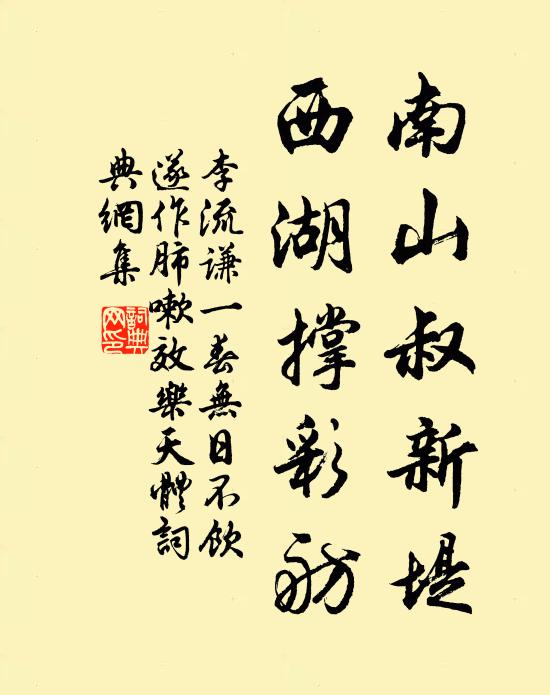 南山叔新堤
西湖撑彩舫
李流谦一春無日不飲
遂作肺嗽效樂天體詞
典網集
詞典网印